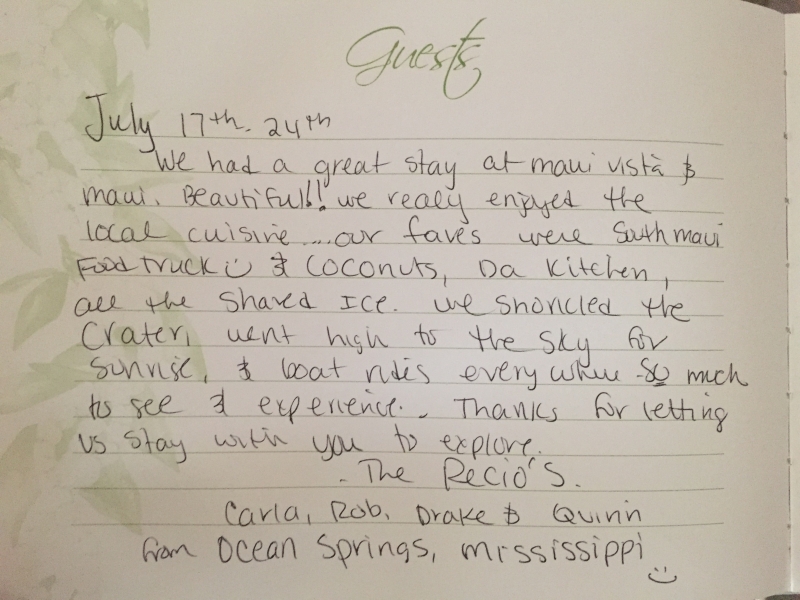 Guests
July 17th. 24th
We had a great stay at maui vista &
maui. Beautiful!! we really enjoyed the
local cuisine....our faves were South maui
Food Truck & Coconuts, Da Kitchen,
all the Shaved Ice. we snorkled the
Crater, went high to the sky for
Sunrise, & boat rides everywhere - so much
to see & experience. - Thanks for letting
us stay with you to explore.
- The Recio's.
Carla, Rob, Drake & Quinn
from Ocean Springs, Mississippi